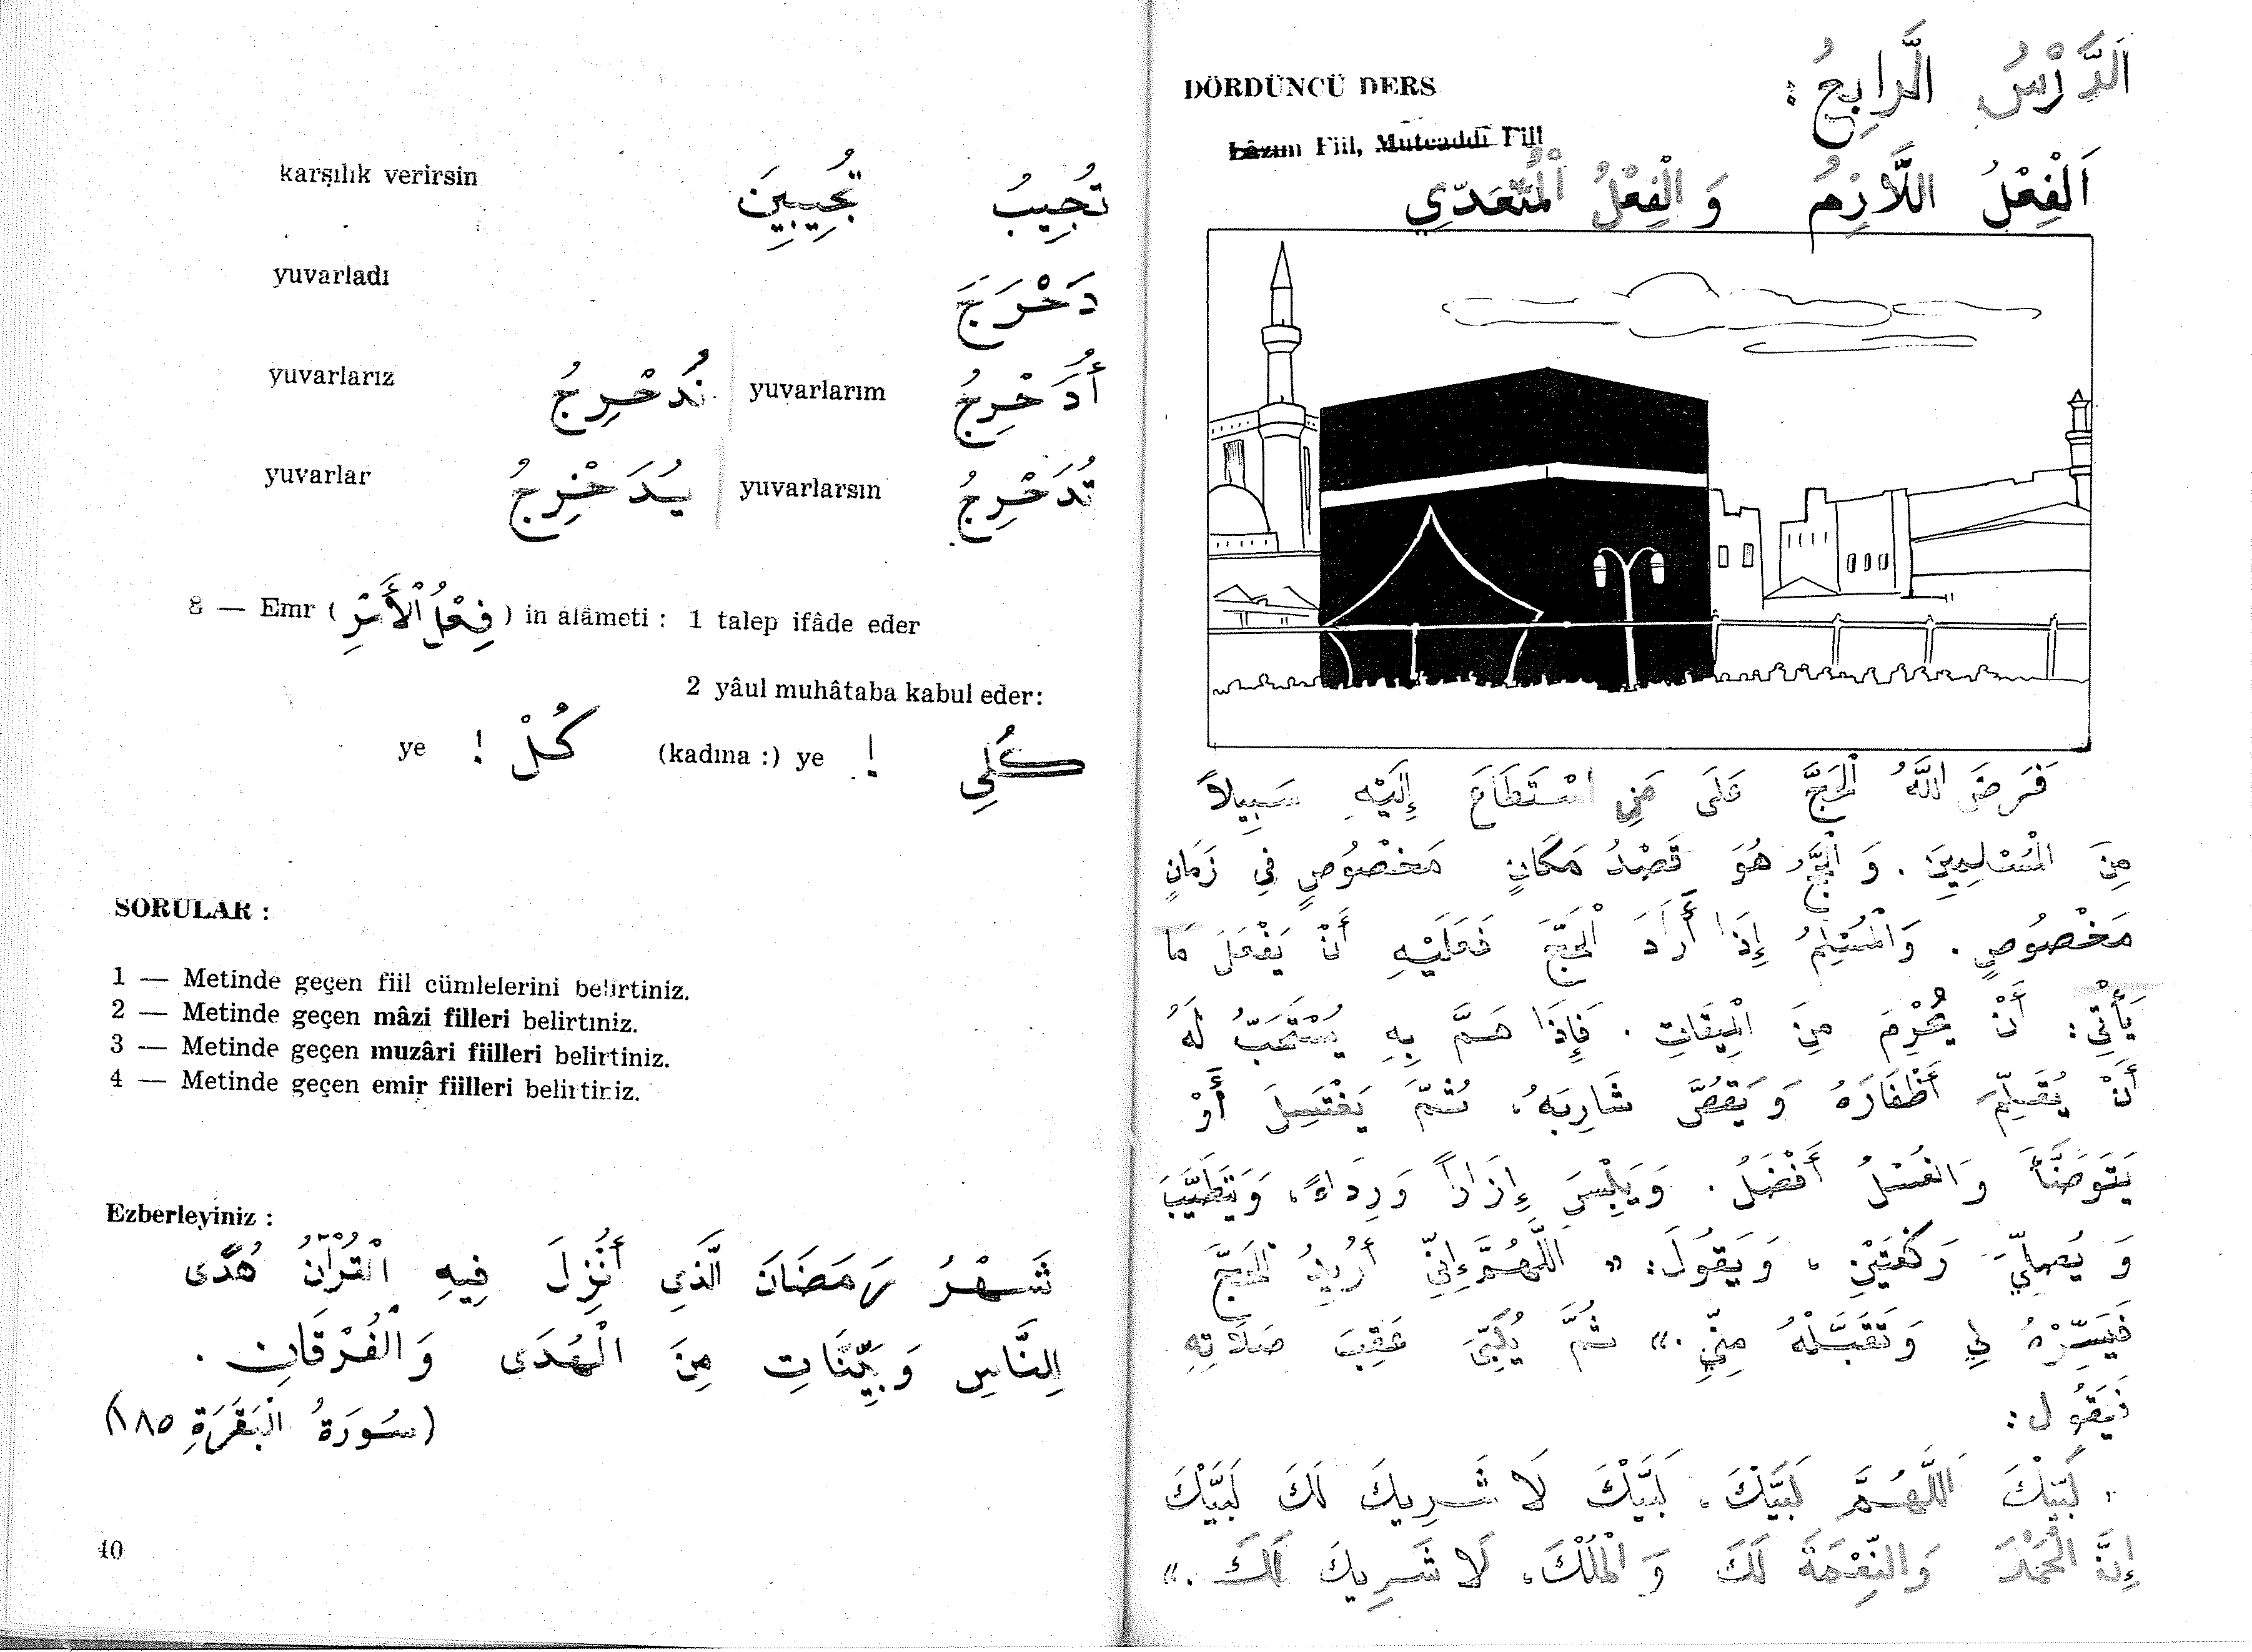 karşılık verirsin تُجِيبُ تُجِيبِينَ
yuvarladı دَحْرَجَ
yuvarlarız نُدَحْرِجُ yuvarlarım أُدَحْرِجُ
yuvarlar يُدَحْرِجُ yuvarlarsın تُدَحْرِجُ
8 — Emr ( فِعْلُ الْأَمْرِ ) in alâmeti : 1 talep ifâde eder
2 yâul muhâtaba kabul eder:
ye ! كُلْ (kadına :) ye ! كُلِي
SORULAR :
1 — Metinde geçen fiil cümlelerini belirtiniz.
2 — Metinde geçen mâzi filleri belirtınız.
3 — Metinde geçen muzâri fiilleri belirtiniz.
4 — Metinde geçen emir fiilleri belirtiniz.
Ezberleyiniz :
شَهْرُ رَمَضَانَ الَّذِي أُنْزِلَ فِيهِ الْقُرْآنُ هُدًى
لِلنَّاسِ وَبَيِّنَاتٍ مِنَ الْهُدَى وَالْفُرْقَانِ .
(سُورَةُ الْبَقَرَةِ ١٨٥)
40
DÖRDÜNCÜ DERS اَلدَّرْسُ الرَّابِعُ :
Lâzım Fiil, Muteaddî Fiil
اَلْفِعْلُ اللَّازِمُ وَ الْفِعْلُ الْمُتَعَدِّي
فَرَضَ اللَّهُ الْحَجَّ عَلَى مَنِ اسْتَطَاعَ إِلَيْهِ سَبِيلاً
مِنَ الْمُسْلِمِينَ . وَ الْحَجُّ هُوَ قَصْدُ مَكَانٍ مَخْصُوصٍ فِي زَمَانٍ
مَخْصُوصٍ . وَالْمُسْلِمُ إِذَا أَرَادَ الْحَجَّ فَعَلَيْهِ أَنْ يَفْعَلَ مَا
يَأْتِي : أَنْ يُحْرِمَ مِنَ الْمِيقَاتِ . فَإِذَا هَمَّ بِهِ يُسْتَحَبُّ لَهُ
أَنْ يُقَلِّمَ أَظْفَارَهُ وَ يَقُصَّ شَارِبَهُ ، ثُمَّ يَغْتَسِلَ أَوْ
يَتَوَضَّأَ وَ الْغُسْلُ أَفْضَلُ . وَ يَلْبِسَ إِزَاراً وَ رِدَاءً ، وَ يَتَطَيَّبَ
وَ يُصَلِّيَ رَكْعَتَيْنِ ، وَ يَقُولَ : « اَللَّهُمَّ إِنِّي أُرِيدُ الْحَجَّ
فَيَسِّرْهُ لِي وَ تَقَبَّلْهُ مِنِّي .» ثُمَّ يُلَبِّيَ عَقِبَ صَلَاتِهِ
فَيَقُولَ :
، لَبَّيْكَ اَللَّهُمَّ لَبَّيْكَ ، لَبَّيْكَ لَا شَرِيكَ لَكَ لَبَّيْكَ
إِنَّ الْحَمْدَ وَالنِّعْمَةَ لَكَ وَ الْمُلْكَ ، لَا شَرِيكَ لَكَ .»